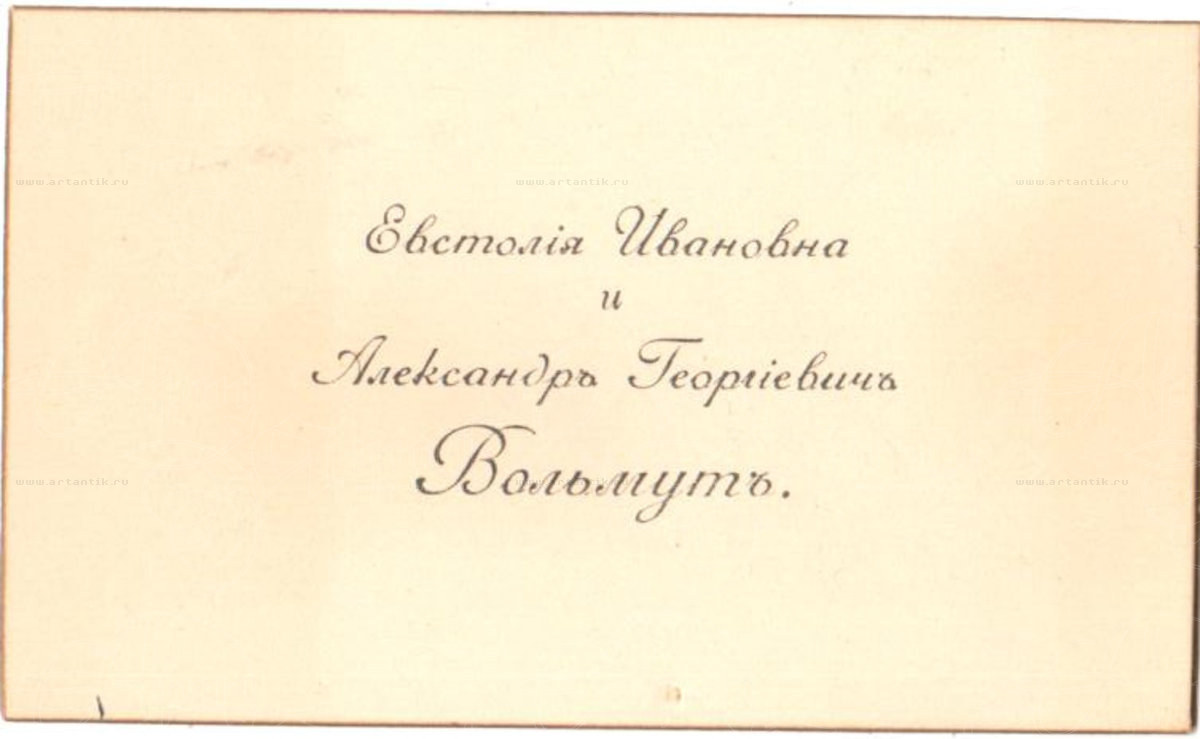 www.artantik.ru www.artantik.ru www.artantik.ru
Евстолія Ивановна
и
Александръ Георгіевичъ
Вольмутъ.
www.artantik.ru www.artantik.ru www.artantik.ru